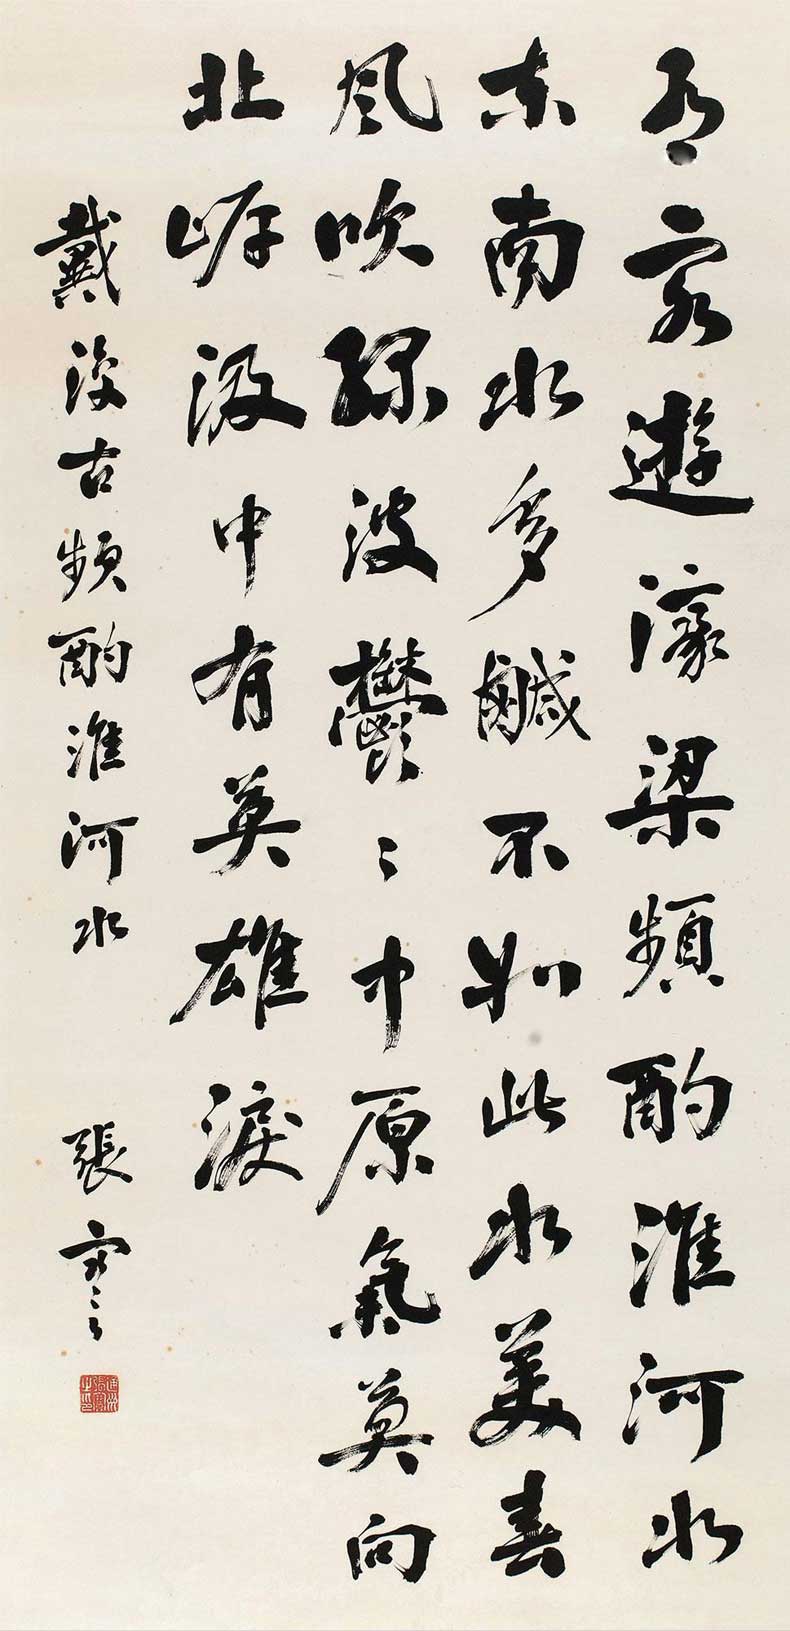 有客遊濠梁頻酌淮河水
東南水多鹹不如此水美春
風吹綠波鬱〻中原氣莫向
北岸汲中有英雄淚
戴復古頻酌淮河水
張謇
通州張謇之印